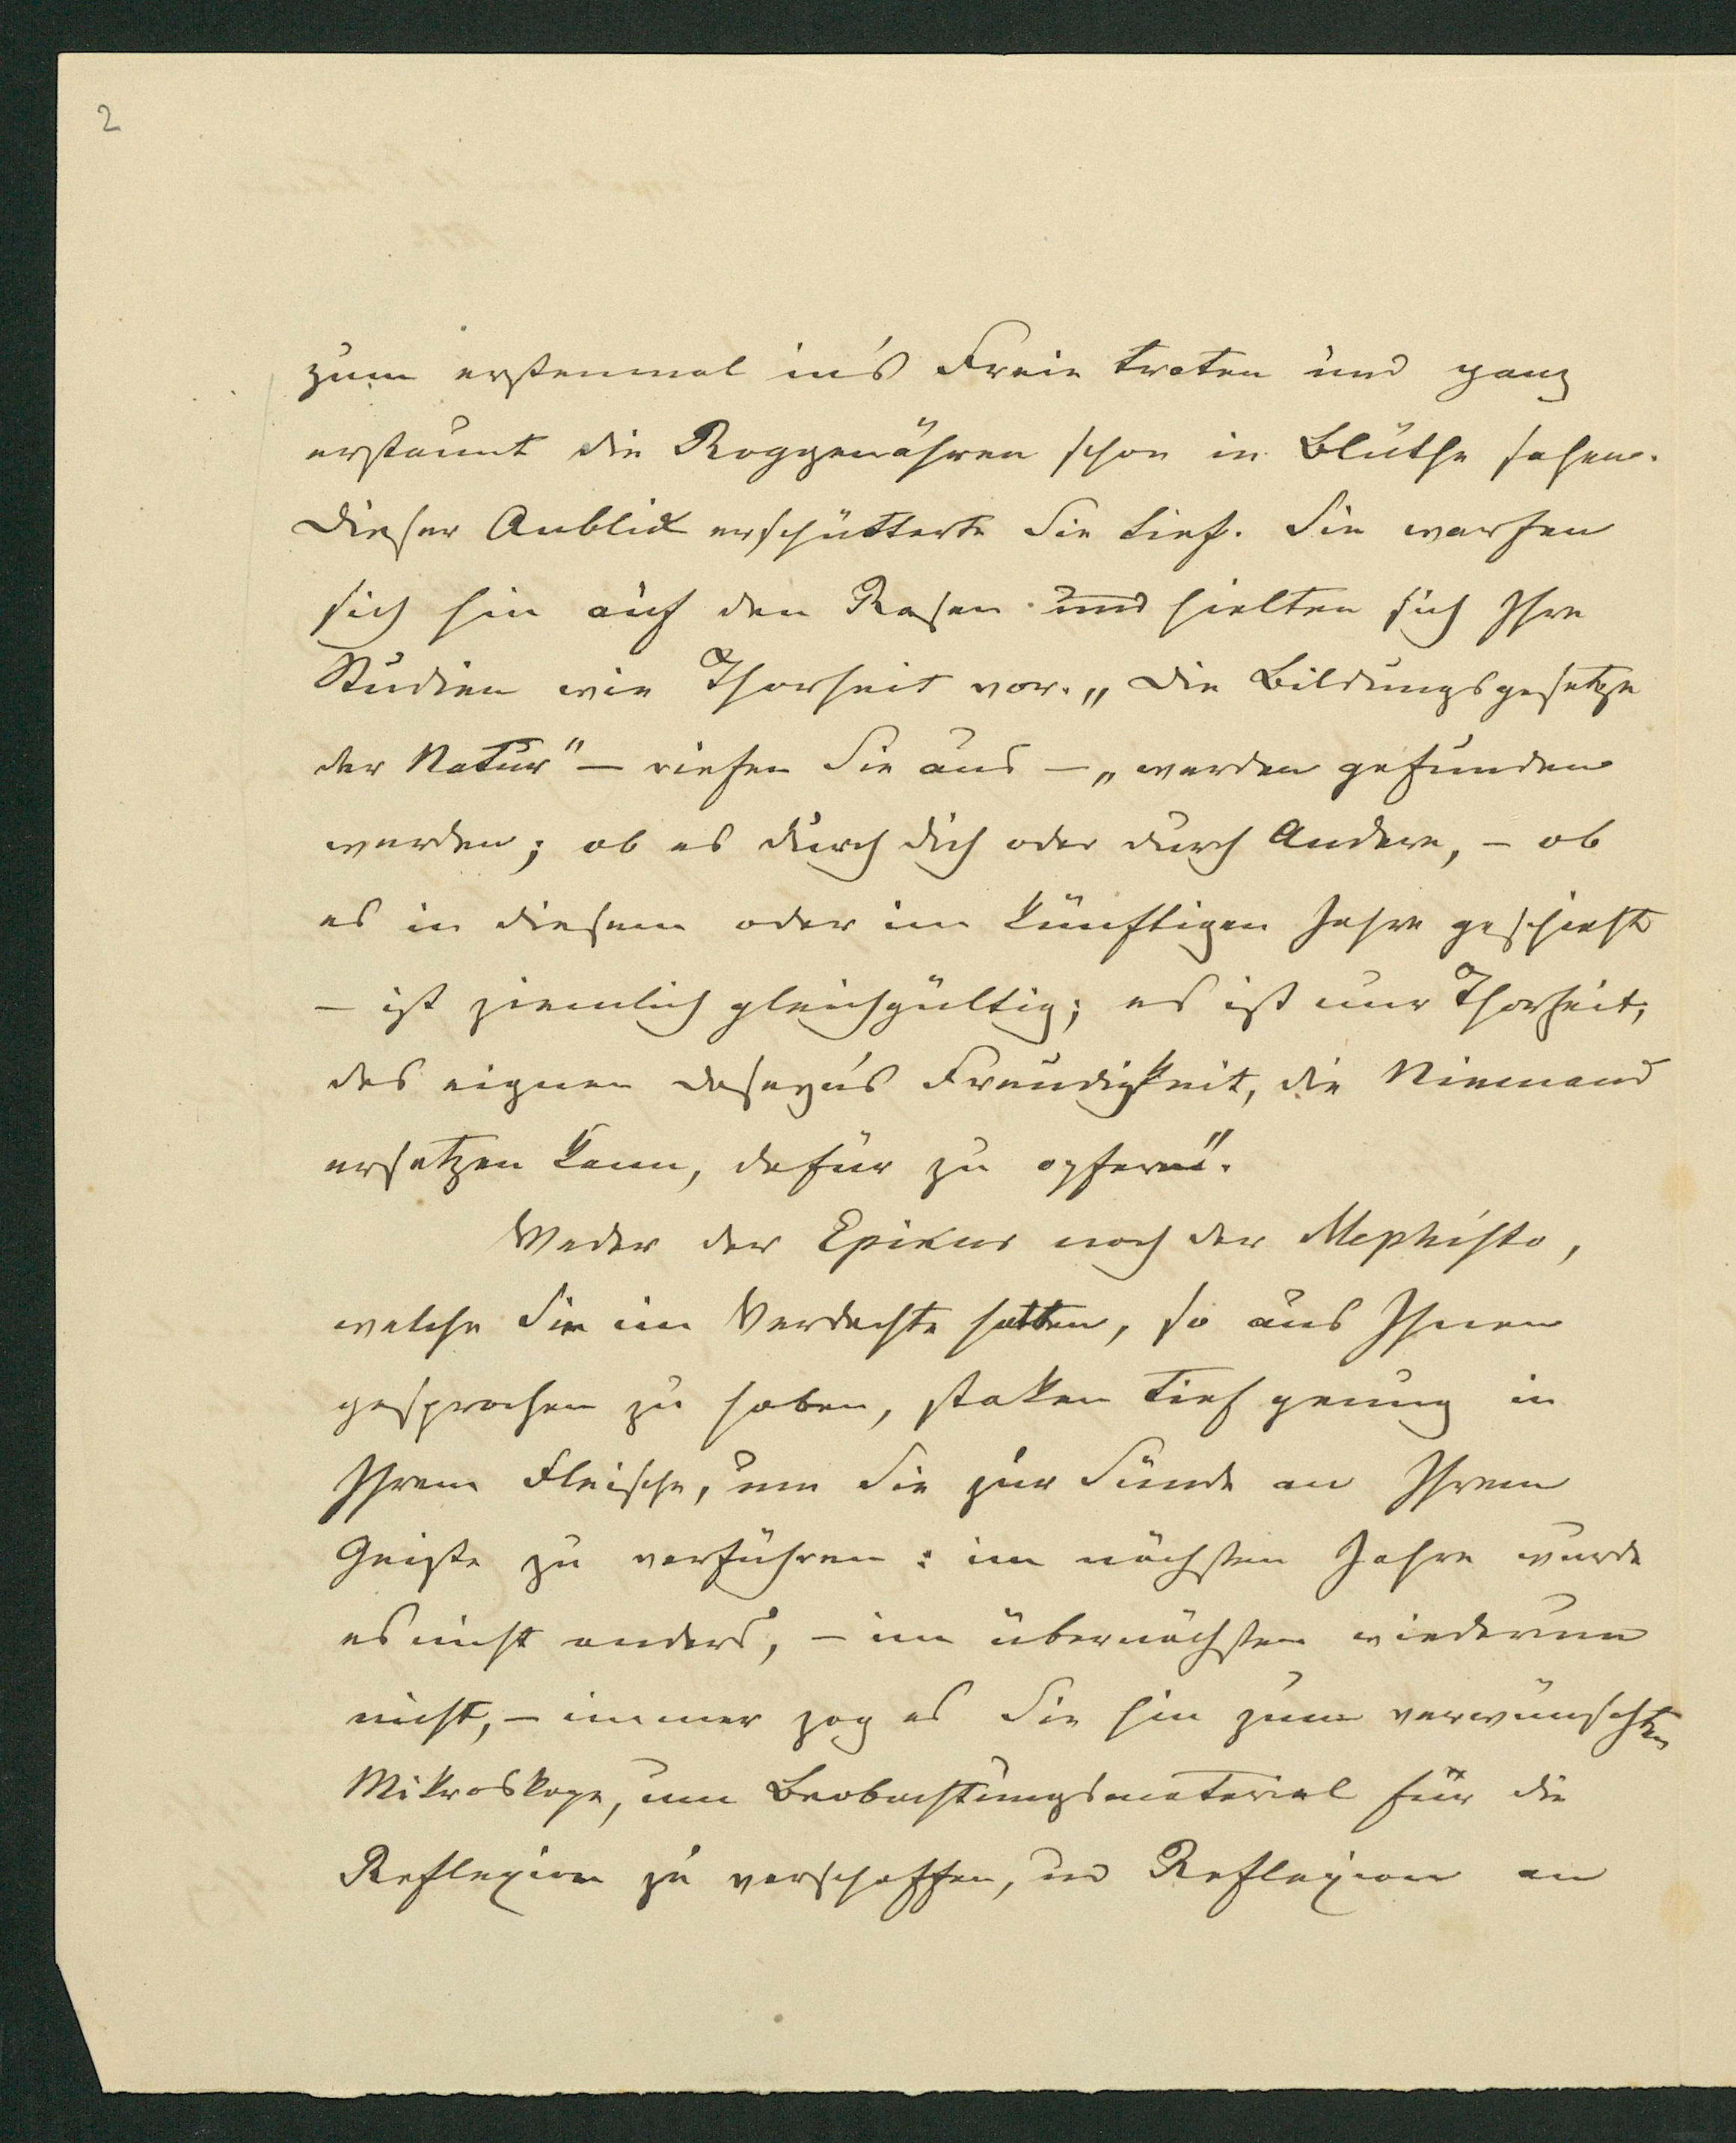 2
zum erstenmal in's Freie traten und ganz
erstaunt die Roggenähren schon in Blüthe sahen.
Dieser Anblick erschütterte Sie tief. Sie warfen
sich hin auf den Rasen und hielten sich Ihre
Studien wie Thorheit vor. „Die Bildungsgesetze
der Natur" — riefen Sie aus — „werden gefunden
werden; ob es durch dich oder durch Andere, – ob
es in diesem oder im künftigen Jahre geschieht
– ist ziemlich gleichgültig; es ist nur Thorheit,
des eignen Daseyn's Freudigkeit, die Niemand
ersetzen kann, dafür zu opfern".
Weder der Epikur noch der Mephisto,
welche Sie im Verdachte hatten, so aus Ihnen
gesprochen zu haben, staken tief genug in
Ihrem Fleische, um Sie zur Sünde an Ihrem
Geiste zu verführen: im nächsten Jahre wurde
es nicht anders, – im übernächsten wiederum
nicht, – immer zog es Sie hin zum verwünschten
Mikroskope, um Beobachtungsmaterial für die
Reflexion zu verschaffen, und Reflexion an